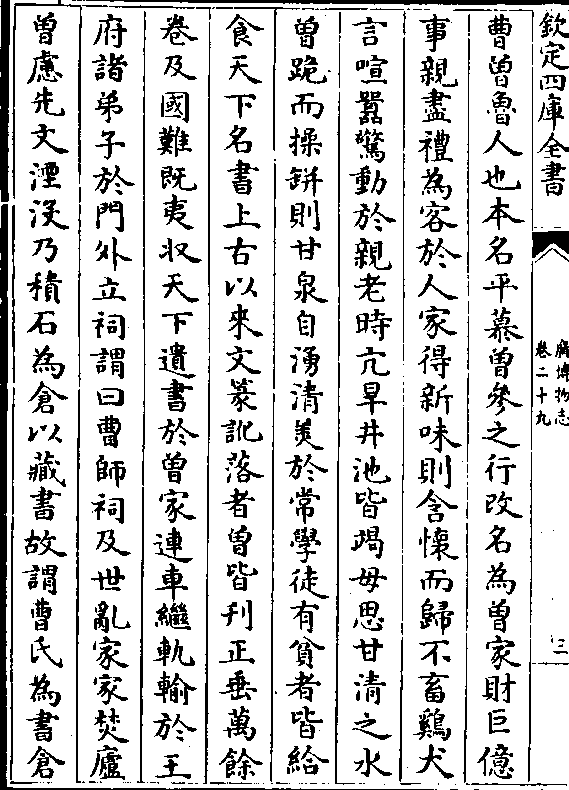 欽定四庫全書
廣博物志
卷二十九
三
曹曾魯人也本名平慕曾參之行改名為曾家財巨億
事親盡禮為客於人家得新味則含懷而歸不畜鷄犬
言喧嚣驚動於親老時亢旱井池皆竭母思甘清之水
曾跪而操缾則甘泉自湧清羙於常學徒有貧者皆給
食天下名書上古以來文篆訛落者曾皆刋正垂萬餘
卷及國難既夷収天下遺書於曾家連車繼軌輸於王
府諸弟子於門外立祠謂曰曹師祠及世亂家家焚廬
曾慮先文湮沒乃積石為倉以藏書故謂曹氏為書倉